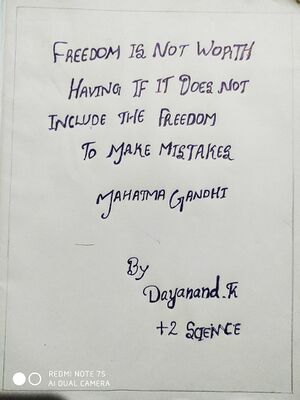 FREEDOM IS NOT WORTH
HAVING IF IT DOES NOT
INCLUDE THE FREEDOM
TO MAKE MISTAKES
MAHATMA GANDHI
By
Dayanand.K
+2 SCIENCE
REDMI NOTE 7S
AI DUAL CAMERA